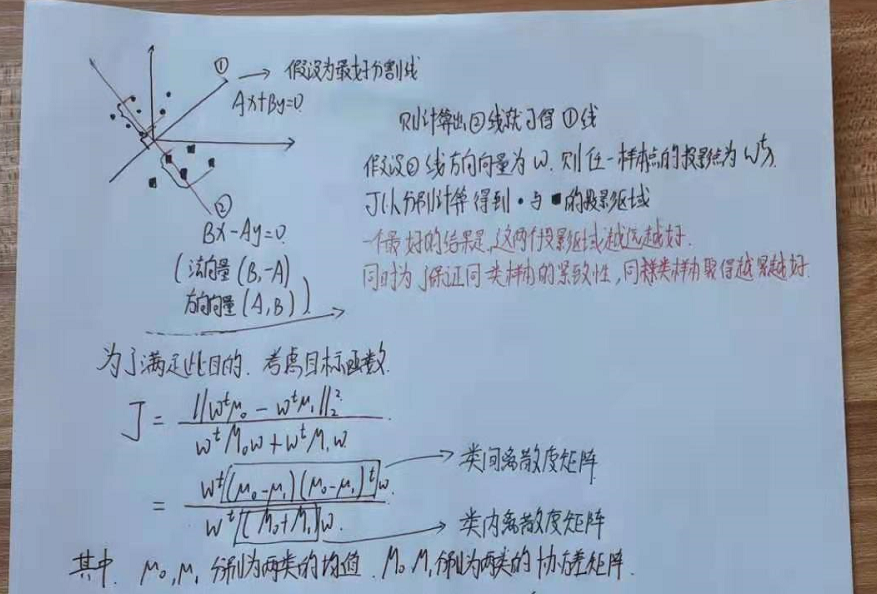 ① → 假设为最好分割线
Ax+By=0
则计算出②线就可得①线
假设②线方向向量为w. 则任一样本点的投影点为wᵗx.
可以分别计算得到·与■的投影区域
一个最好的结果是,这两个投影区域越远越好.
同时为了保证同类样本的紧致性,同类样本聚得越紧越好.
②
Bx-Ay=0
(法向量(B,-A)
方向向量(A,B))
为了满足此目的. 考虑目标函数.
J = ||wᵗμ₀ - wᵗμ₁||₂² / wᵗM₀w + wᵗM₁w
= wᵗ(μ₀-μ₁)(μ₀-μ₁)ᵗw / wᵗ(M₀+M₁)w.
→ 类间离散度矩阵
→ 类内离散度矩阵
其中. μ₀,μ₁ 分别为两类的均值. M₀ M₁分别为两类的协方差矩阵.